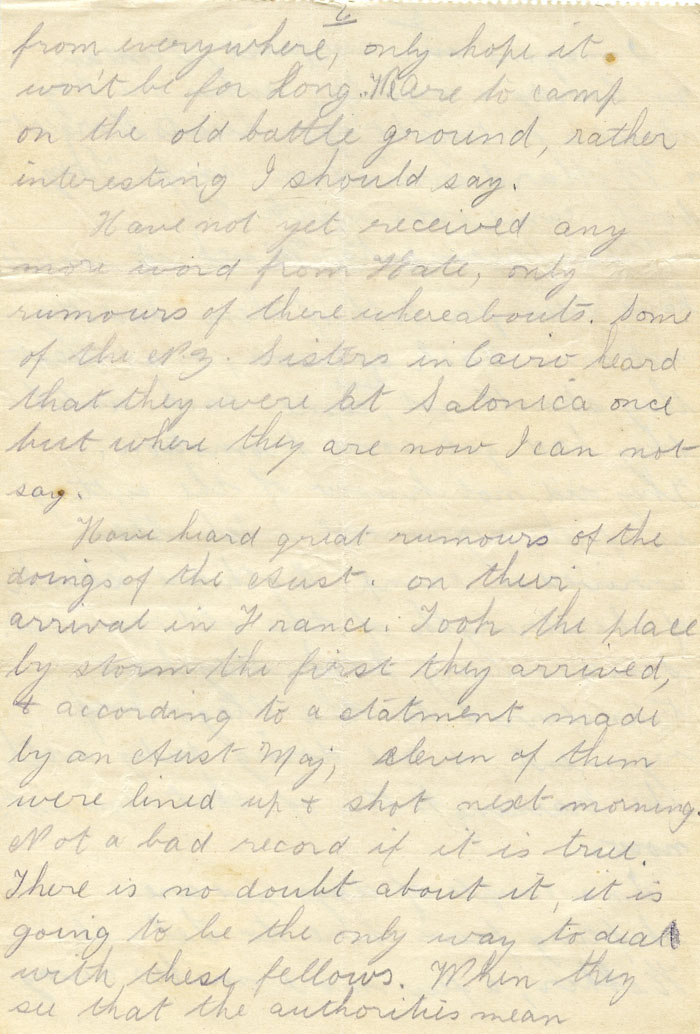 6
from everywhere, only hope it
won't be for long. We are to camp
on the old battle ground, rather
interesting I should say.
Have not yet received any
more word from Kate, only
rumours of there whereabouts. Some
of the N.Z. Sisters in Cairo heard
that they were at Salonica once
but where they are now I can not
say.
Have heard great rumours of the
doings of the Aust. on their
arrival in France. Took the place
by storm the first they arrived,
& according to a statment made
by an Aust Maj, eleven of them
were lined up & shot next morning.
Not a bad record if it is true.
There is no doubt about it, it is
going to be the only way to deal
with these fellows. When they
see that the authorities mean